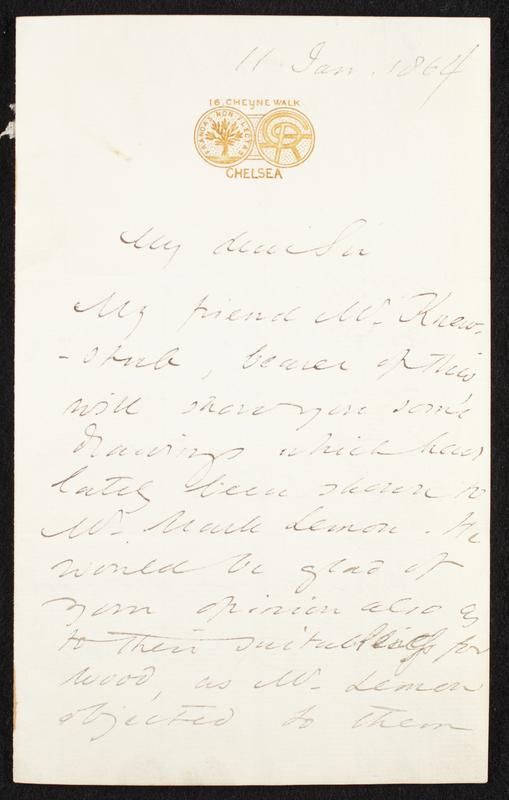 11 Jan. 1864
16. CHEYNE WALK
FRANGAS NON FLECTAS
CHELSEA
My dear Sir
My friend Mr. Knew-
-stub, bearer of this
will show you some
drawings which have
lately been shown to
Mr. Mark Lemon. He
would be glad of
your opinion also as
to their suitableness for
wood, as Mr. Lemon
objected to them